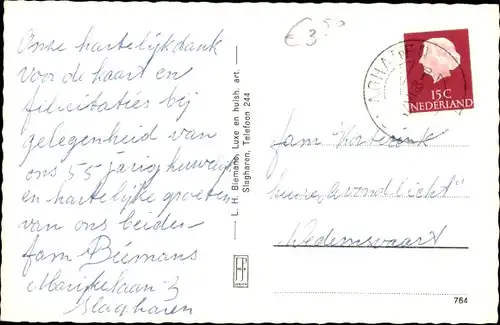 Onze hartelijkdank
voor de kaart en
felicitaties bij
gelegenheid van
ons 55 jarig huwelijk
en hartelijke groeten
van ons beiden
fam Biemans
Marijkelaan 3
Slagharen
€3,50
L. H. Biemans, Luxe en huish. art.
Slagharen, Telefoon 244
SLAGHAREN
15C
NEDERLAND
fam Korterink
Avondlicht"
Dedemsvaart
764